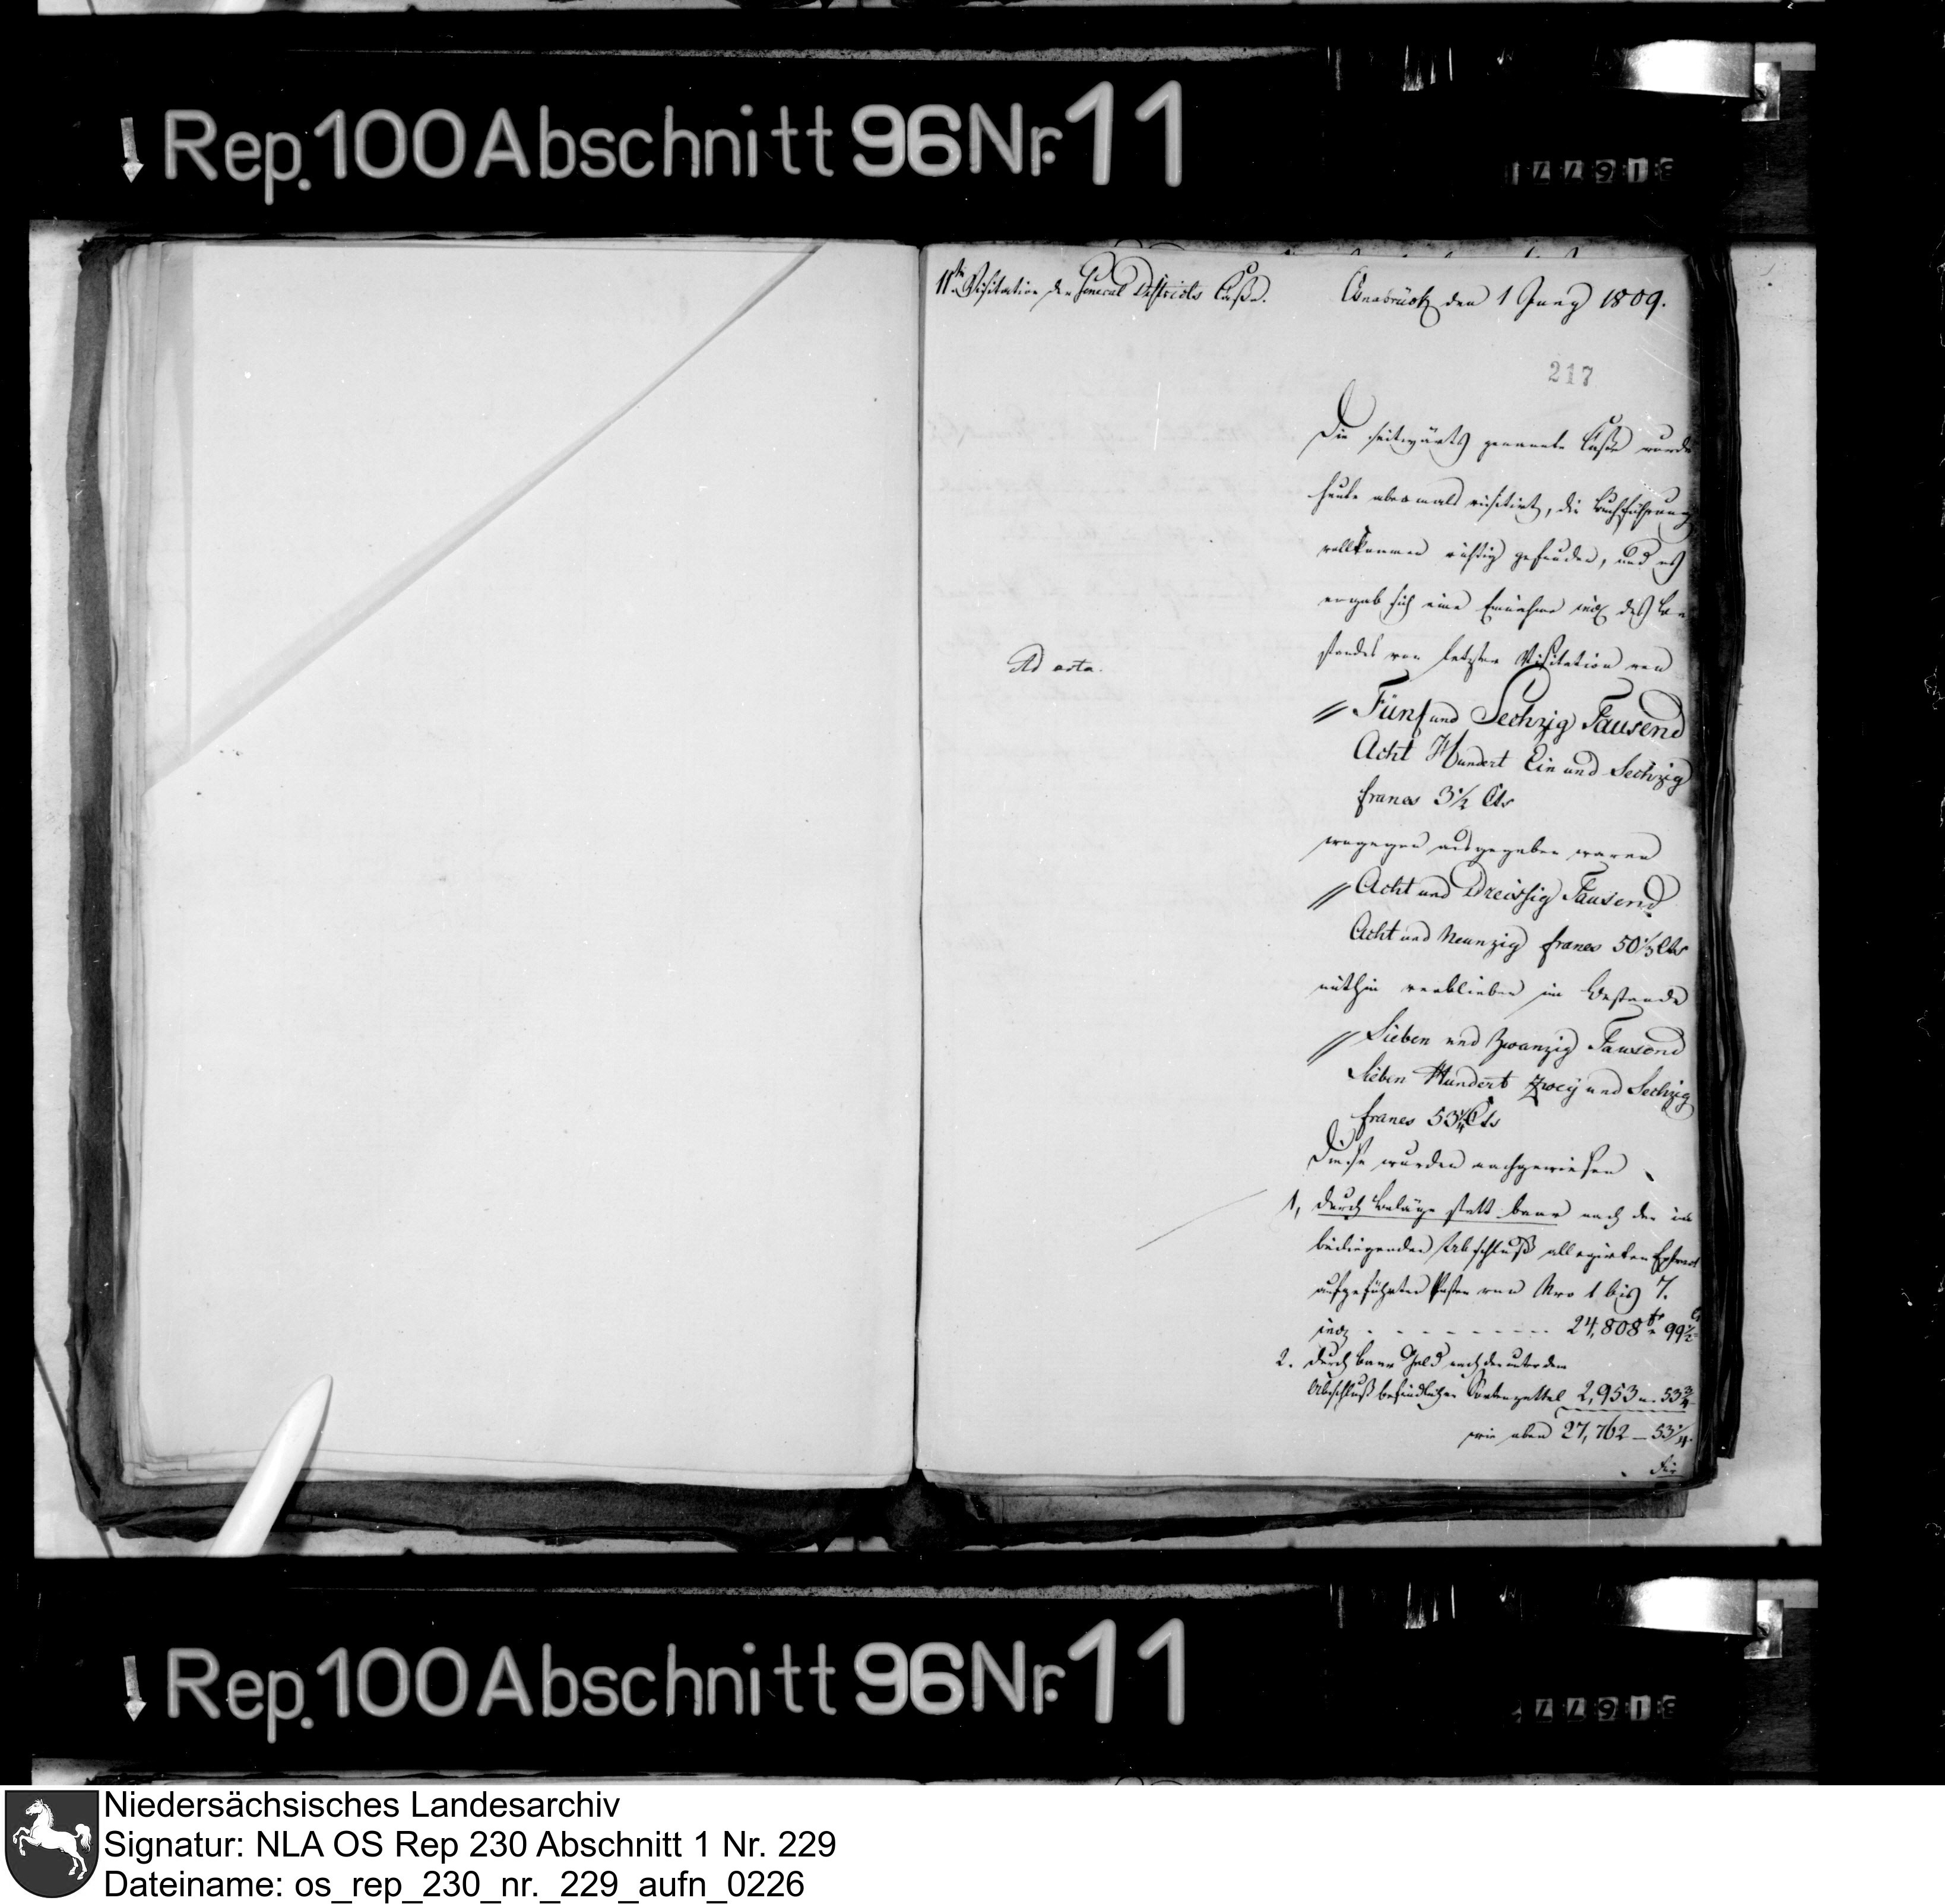 Rep. 100 Abschnitt 96 Nr. 11
11te Visitation der General Districts Casse.
Osnabrück den 1 Juny 1809.
217
Die seitwärts genannte Casse wurde
heute abermals visitirt, die Buchführung
vollkommen richtig gefunden, und es
ergab sich eine Einnahme incl. des Be
standes von letzter Visitation von
Ad acta.
// Fünf und Sechzig Tausend
Acht Hundert Ein und Sechzig
francs 3½ Cts
wogegen ausgegeben waren
// Acht und Dreissig Tausend
Acht und Neunzig francs 50⅓ Cts
mithin verblieben im Bestande
// Sieben und Zwanzig Tausend
Sieben Hundert Zwey und Sechzig
francs 53¼ Cts
Diese wurden nachgewiesen
1, durch Beläge statt baar nach der im
beiliegenden Abschluß allegirten
aufgeführten Posten von Nro 1 bis 7.
incl - - - - - - - - - 24,808 fr 99½ Cs
2. durch baar Geld nach der unter dem
Abschluß befindlichen Sortenzettel 2,953 „ 53¾
wie oben 27,762 — 53¼
Die
Rep. 100 Abschnitt 96 Nr. 11
Niedersächsisches Landesarchiv
Signatur: NLA OS Rep 230 Abschnitt 1 Nr. 229
Dateiname: os_rep_230_nr._229_aufn_0226